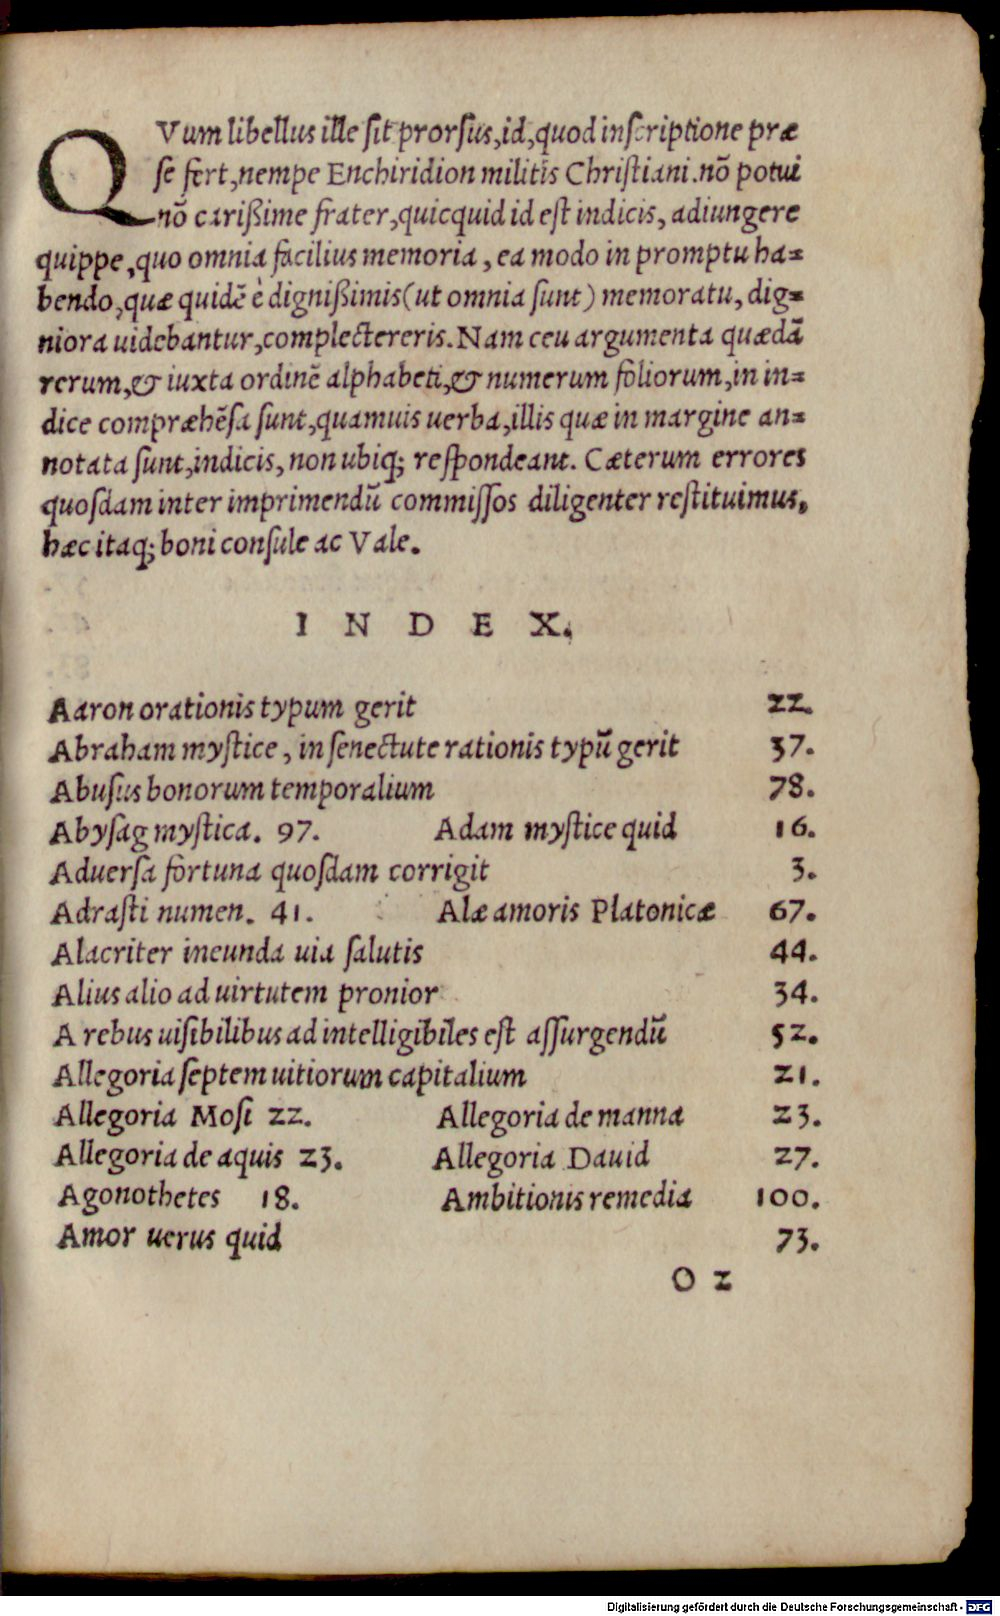 QVum libellus ille ſit prorſus,id,quod inſcriptione præ
ſe fert,nempe Enchiridion militis Chriſtiani.nõ potui
nõ carißime frater,quicquid id eſt indicis, adiungere
quippe,quo omnia facilius memoria, ea modo in promptu ha=
bendo,quæ quidẽ è dignißimis(ut omnia ſunt) memoratu, dig=
niora uidebantur,complectereris.Nam ceu argumenta quædã
rerum,& iuxta ordinẽ alphabeti,& numerum foliorum,in in=
dice compræhẽſa ſunt,quamuis uerba,illis quæ in margine an=
notata ſunt,indicis, non ubiq; reſpondeant. Cæterum errores
quoſdam inter imprimendũ commiſſos diligenter reſtituimus,
hæc itaq; boni conſule ac Vale.
INDEX.
Aaron orationis typum gerit 22.
Abraham myſtice, in ſenectute rationis typũ gerit 37.
Abuſus bonorum temporalium 78.
Abyſag myſtica. 97. Adam myſtice quid 16.
Aduerſa fortuna quoſdam corrigit 3.
Adraſti numen. 41. Alæ amoris Platonicæ 67.
Alacriter ineunda uia ſalutis 44.
Alius alio ad uirtutem pronior 34.
A rebus uiſibilibus ad intelligibiles eſt aſſurgendũ 52.
Allegoria ſeptem uitiorum capitalium 21.
Allegoria Moſi 22. Allegoria de manna 23.
Allegoria de aquis 23. Allegoria Dauid 27.
Agonothetes 18. Ambitionis remedia 100.
Amor uerus quid 73.
O 2
Digitalisierung gefördert durch die Deutsche Forschungsgemeinschaft - DFG